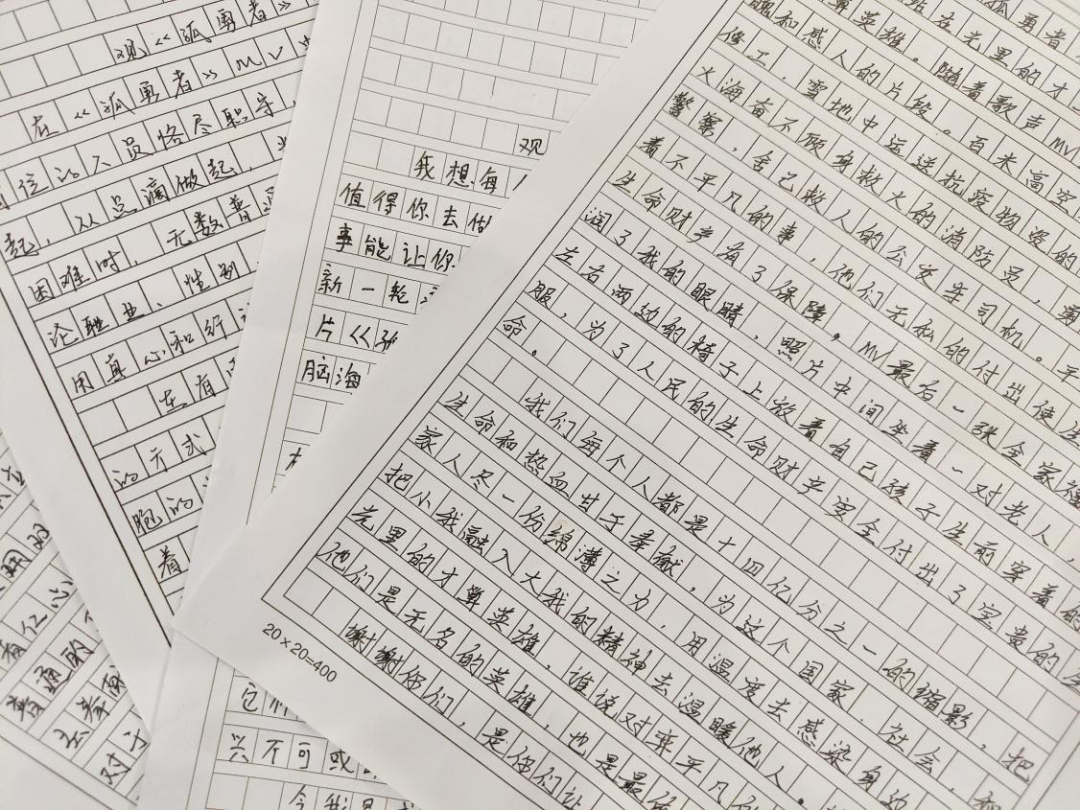 观《孤勇者》
在《孤勇者》MV
位的人员恪尽职守
起,从点滴做起,
困难时,无数普通
论职业、性别
用真心和行
在有
的方式
胞的
着
有仁心
普通的
对于
观
我想每
值得你去做
事能让你
新一轮
片《孤
脑海
兴不可或
孤勇者
在光里的才
算英雄。随着歌声MV
和感人的片段。百米高空
修工,雪地中运送抗疫物资的
火海奋不顾身救火的消防员,勇
警察,舍己救人的公交车司机。平
着不平凡的事,他们无私的付出使
生命财产有了保障。MV最后一张全家
润了我的眼睛,照片中间坐着一对老人,
左右两边的椅子上放着自己孩子生前穿着的
服,为了人民的生命财产安全付出了宝贵的生
命。
我们每个人都是十四亿分之一的缩影,把
生命和热血甘于奉献,为这个国家、社会、
家人尽一份绵薄之力,用温度去感染身边
把小我融入大我的精神去温暖他人。
光里的才算英雄,谁说对平凡
他们是无名的英雄,也是最
谢谢你们,是你们让
20×20=400